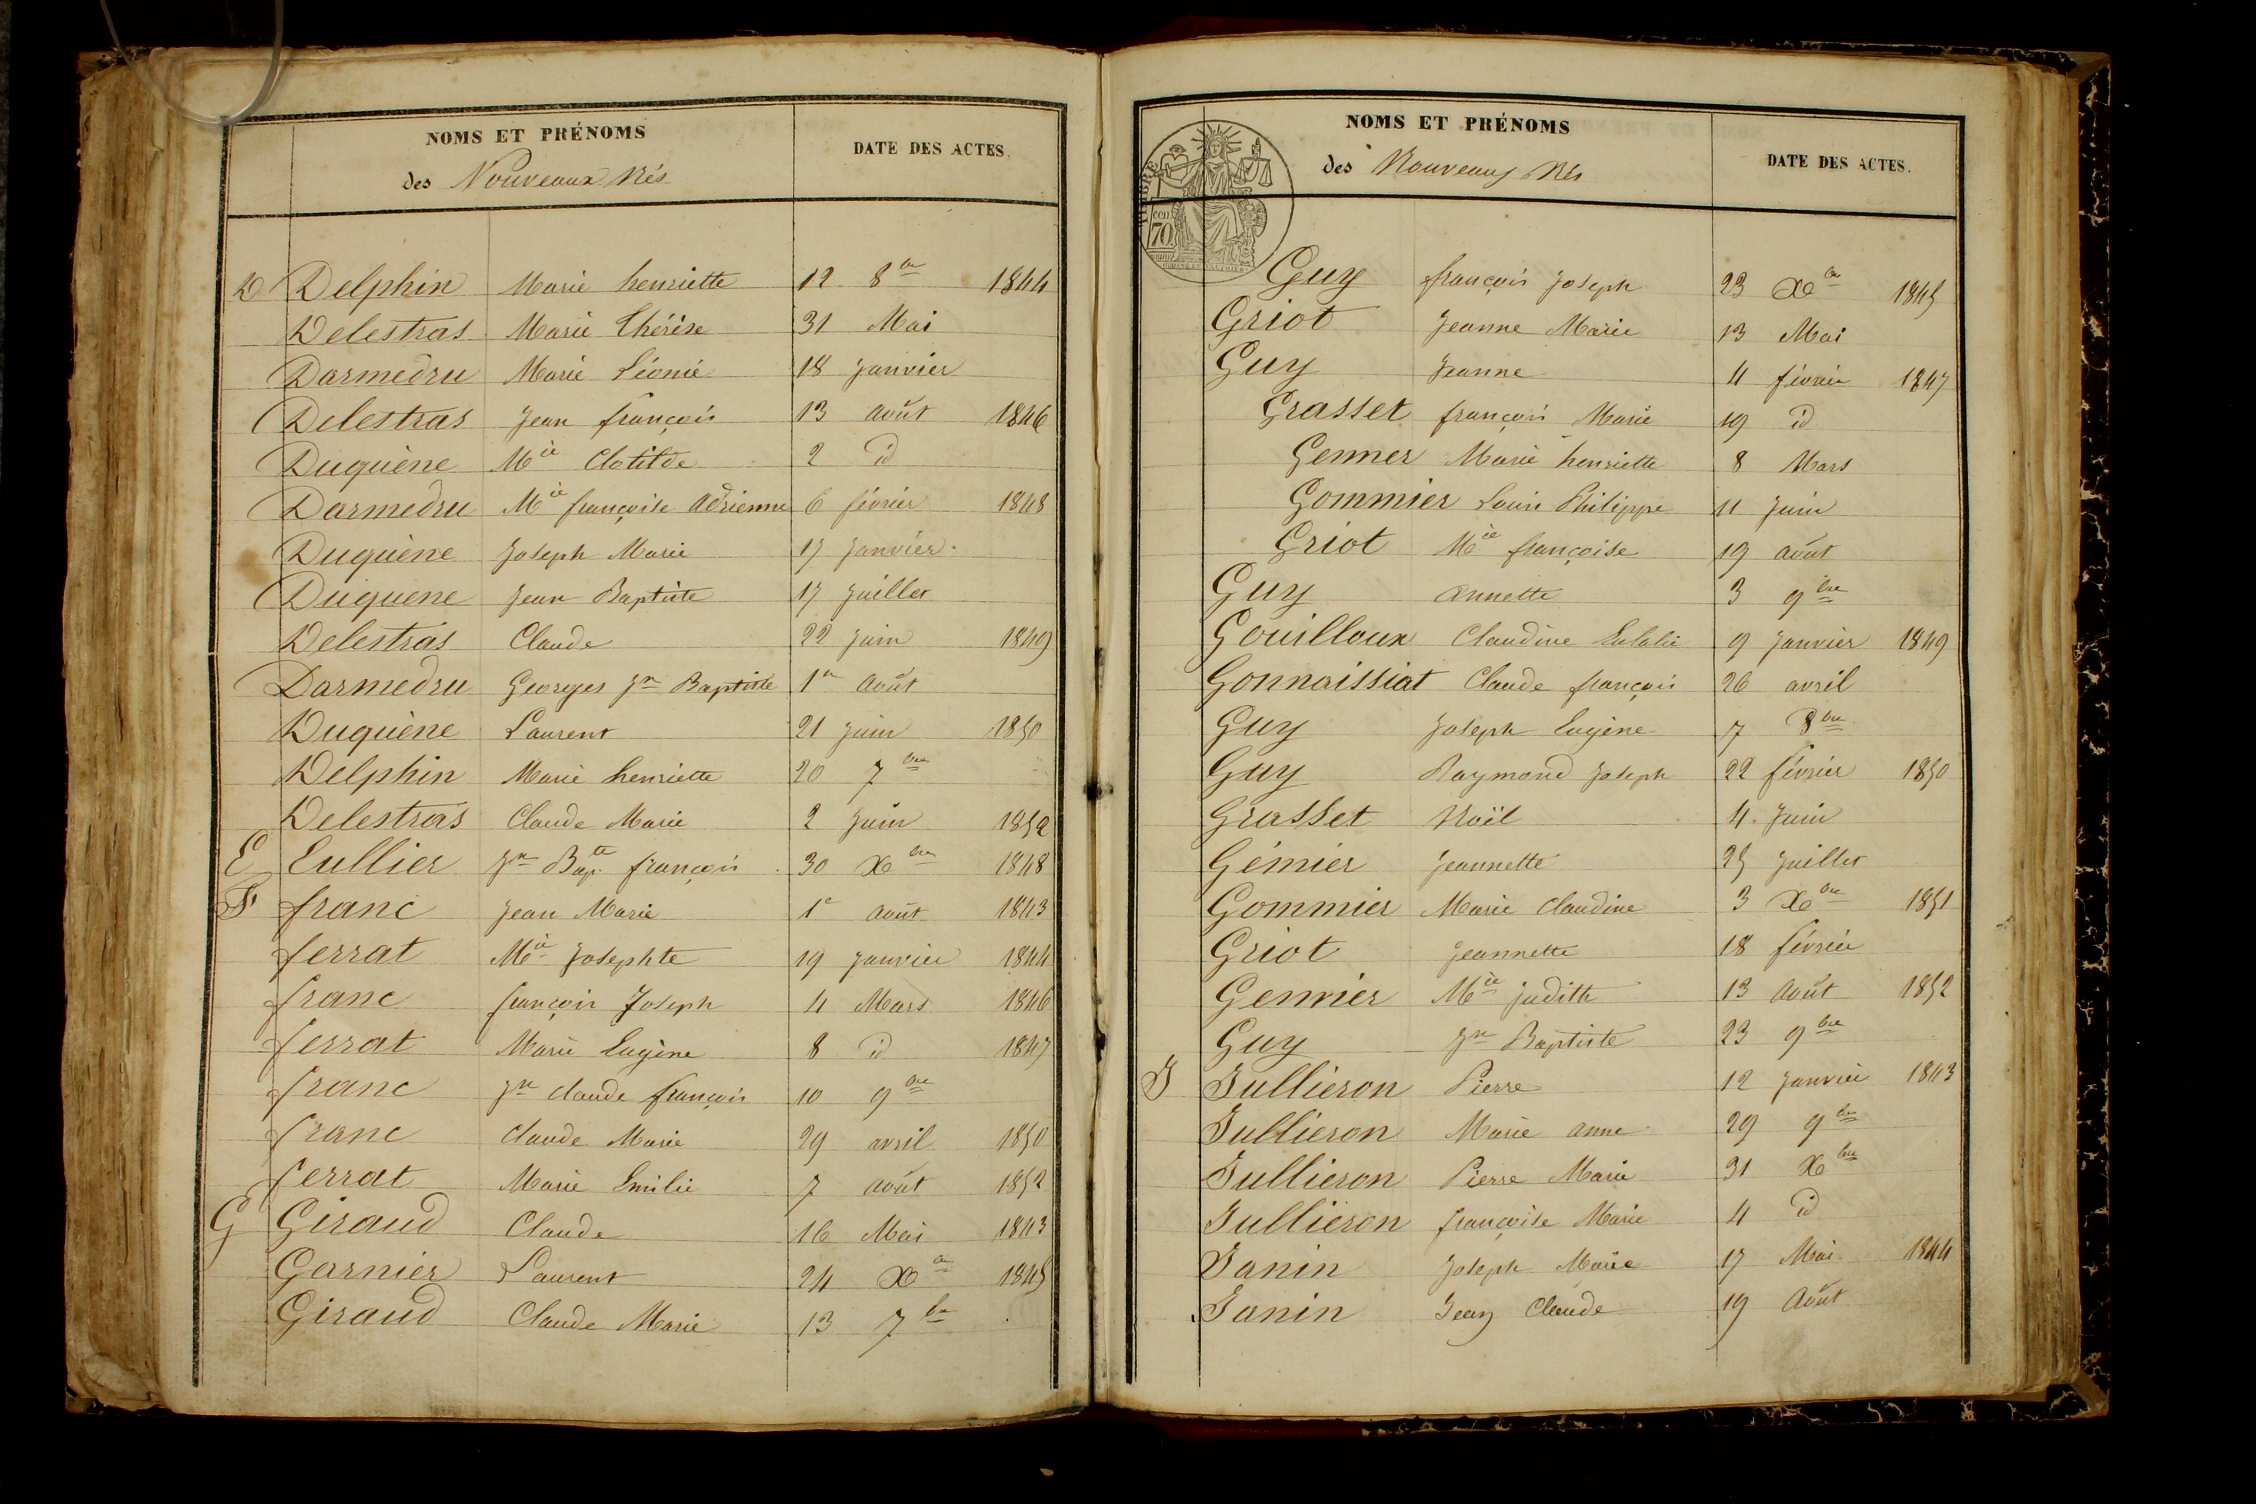 NOMS ET PRÉNOMS
des Nouveaux Nés
DATE DES ACTES.
D Delphin Marie henriette 12 8bre 1844
Delestras Marie Thérèse 31 Mai
Darmedru Marie Léonie 18 Janvier
Delestras Jean françois 13 août 1846
Duquène Mie Clotilde 2 id
Darmedru Mie françoise Adrienne 6 février 1848
Duquène Joseph Marie 17 Janvier
Duquene Jean Baptiste 17 Juillet
Delestras Claude 22 Juin 1849
Darmedru Georges Jn Baptiste 1er Août
Duquène Laurent 21 Juin 1850
Delphin Marie henriette 20 7bre
Delestras Claude Marie 2 Juin 1852
E Eullier Jn Bapte françois 30 Xbre 1848
F franc Jean Marie 1er août 1843
ferrat Mie Josephte 19 Janvier 1844
franc françois Joseph 4 Mars 1846
ferrat Marie Eugène 8 id 1847
franc Jn claude françois 10 9bre
franc Claude Marie 29 avril 1850
ferrat Marie Emilie 7 août 1852
G Giraud Claude 16 Mai 1843
Garnier Laurent 24 Xbre 1845
Giraud Claude Marie 13 7bre
NOMS ET PRÉNOMS
des Nouveaux Nés
DATE DES ACTES.
70
Guy françois Joseph 23 Xbre 1845
Griot Jeanne Marie 13 Mai
Guy Jeanne 4 février 1847
Grasset françois Marie 19 id
Genner Marie henriette 8 Mars
Gommier Louis Philippe 11 Juin
Griot Mie françoise 19 août
Guy annette 3 9bre
Gouilloux Claudine Eulalie 9 Janvier 1849
Gonnaissiat Claude françois 26 avril
Guy Joseph Eugène 7 8bre
Guy Raymond Joseph 22 février 1850
Grasset Noël 4 Juin
Gémier Jeannette 25 Juillet
Gommier Marie Claudine 3 Xbre 1851
Griot Jeannette 18 février
Genvier Mie Judith 13 Août 1852
Guy Jn Baptiste 23 9bre
J Jullieron Pierre 12 Janvier 1843
Jullieron Marie anne 29 9bre
Jullieron Pierre Marie 31 Xbre
Jullieron françoise Marie 4 id
Janin Joseph Marie 17 Mai 1844
Janin Jean Claude 19 Août